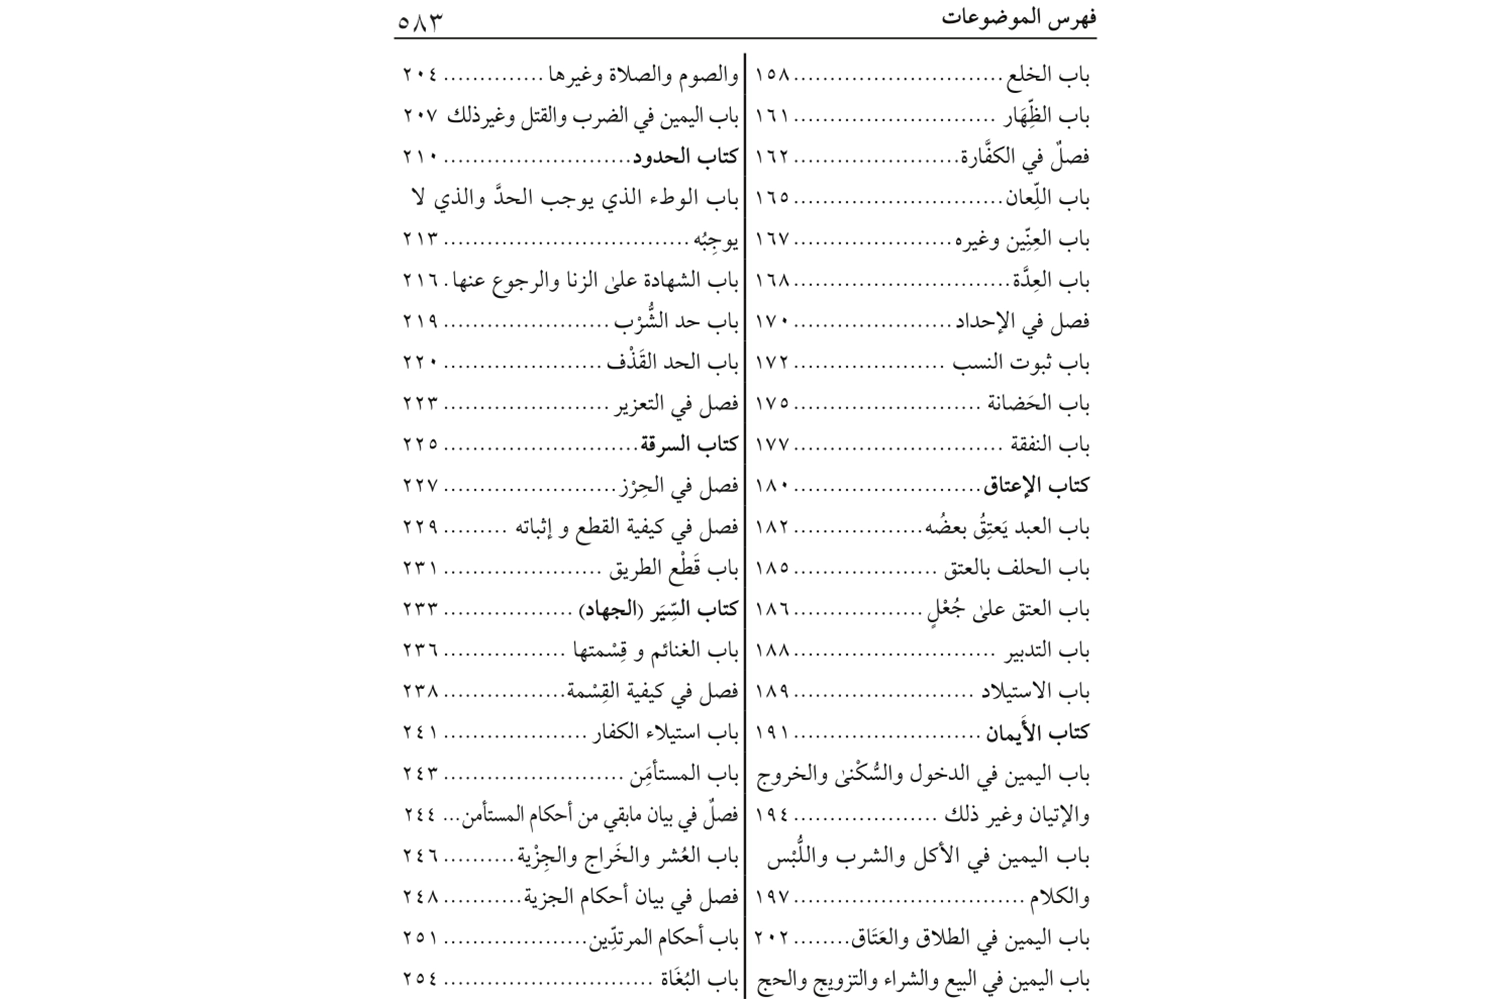 فهرس الموضوعات ٥٨٣
باب الخلع............................. ١٥٨
باب الظِّهَار ............................ ١٦١
فصلٌ في الكفَّارة....................... ١٦٢
باب اللِّعان............................. ١٦٥
باب العِنِّين وغيره...................... ١٦٧
باب العِدَّة.............................. ١٦٨
فصل في الإحداد...................... ١٧٠
باب ثبوت النسب ..................... ١٧٢
باب الحَضانة .......................... ١٧٥
باب النفقة ............................. ١٧٧
كتاب الإعتاق.......................... ١٨٠
باب العبد يَعتِقُ بعضُه.................. ١٨٢
باب الحلف بالعتق .................... ١٨٥
باب العتق علىٰ جُعْلٍ.................. ١٨٦
باب التدبير ............................ ١٨٨
باب الاستيلاد ......................... ١٨٩
كتاب الأَيمان .......................... ١٩١
باب اليمين في الدخول والسُّكْنىٰ والخروج
والإتيان وغير ذلك .................... ١٩٤
باب اليمين في الأكل والشرب واللُّبْس
والكلام ................................ ١٩٧
باب اليمين في الطلاق والعَتَاق........ ٢٠٢
باب اليمين في البيع والشراء والتزويج والحج
والصوم والصلاة وغيرها .............. ٢٠٤
باب اليمين في الضرب والقتل وغيرذلك ٢٠٧
كتاب الحدود.......................... ٢١٠
باب الوطء الذي يوجب الحدَّ والذي لا
يوجِبُه .................................. ٢١٣
باب الشهادة علىٰ الزنا والرجوع عنها . ٢١٦
باب حد الشُّرْب ....................... ٢١٩
باب الحد القَذْف ...................... ٢٢٠
فصل في التعزير ....................... ٢٢٣
كتاب السرقة........................... ٢٢٥
فصل في الحِرْز ........................ ٢٢٧
فصل في كيفية القطع و إثباته ......... ٢٢٩
باب قَطْع الطريق ...................... ٢٣١
كتاب السِّيَر (الجهاد) .................. ٢٣٣
باب الغنائم و قِسْمتها ................. ٢٣٦
فصل في كيفية القِسْمة................. ٢٣٨
باب استيلاء الكفار .................... ٢٤١
باب المستأمَِن ......................... ٢٤٣
فصلٌ في بيان مابقي من أحكام المستأمن ... ٢٤٤
باب العُشر والخَراج والجِزْية.......... ٢٤٦
فصل في بيان أحكام الجزية........... ٢٤٨
باب أحكام المرتدِّين.................... ٢٥١
باب البُغَاة ............................. ٢٥٤